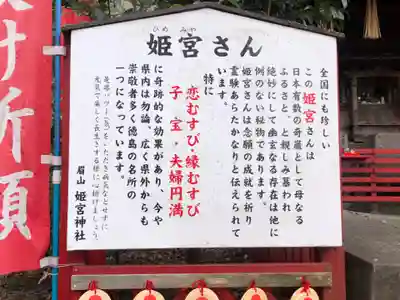 ひめ みや
姫宮さん
全国にも珍しい
この姫宮さんは
日本有数の奇巌として母なる
ふるさと、と親しみ慕われ
絶妙にして幽玄なる存在は他に
例のない秘物であります。
姫宮さんは念願の成就を祈り
霊験あらたかなりと伝えられて
います。
特に
恋むすび・縁むすび
子宝・夫婦円満
に奇跡的な効果があり、今や
県内は勿論、広く県外からも
崇敬者多く徳島の名所の
一つになっています。
元気で楽しく長生きする様に心掛けましょう
眉山 姫宮神社
け祈願